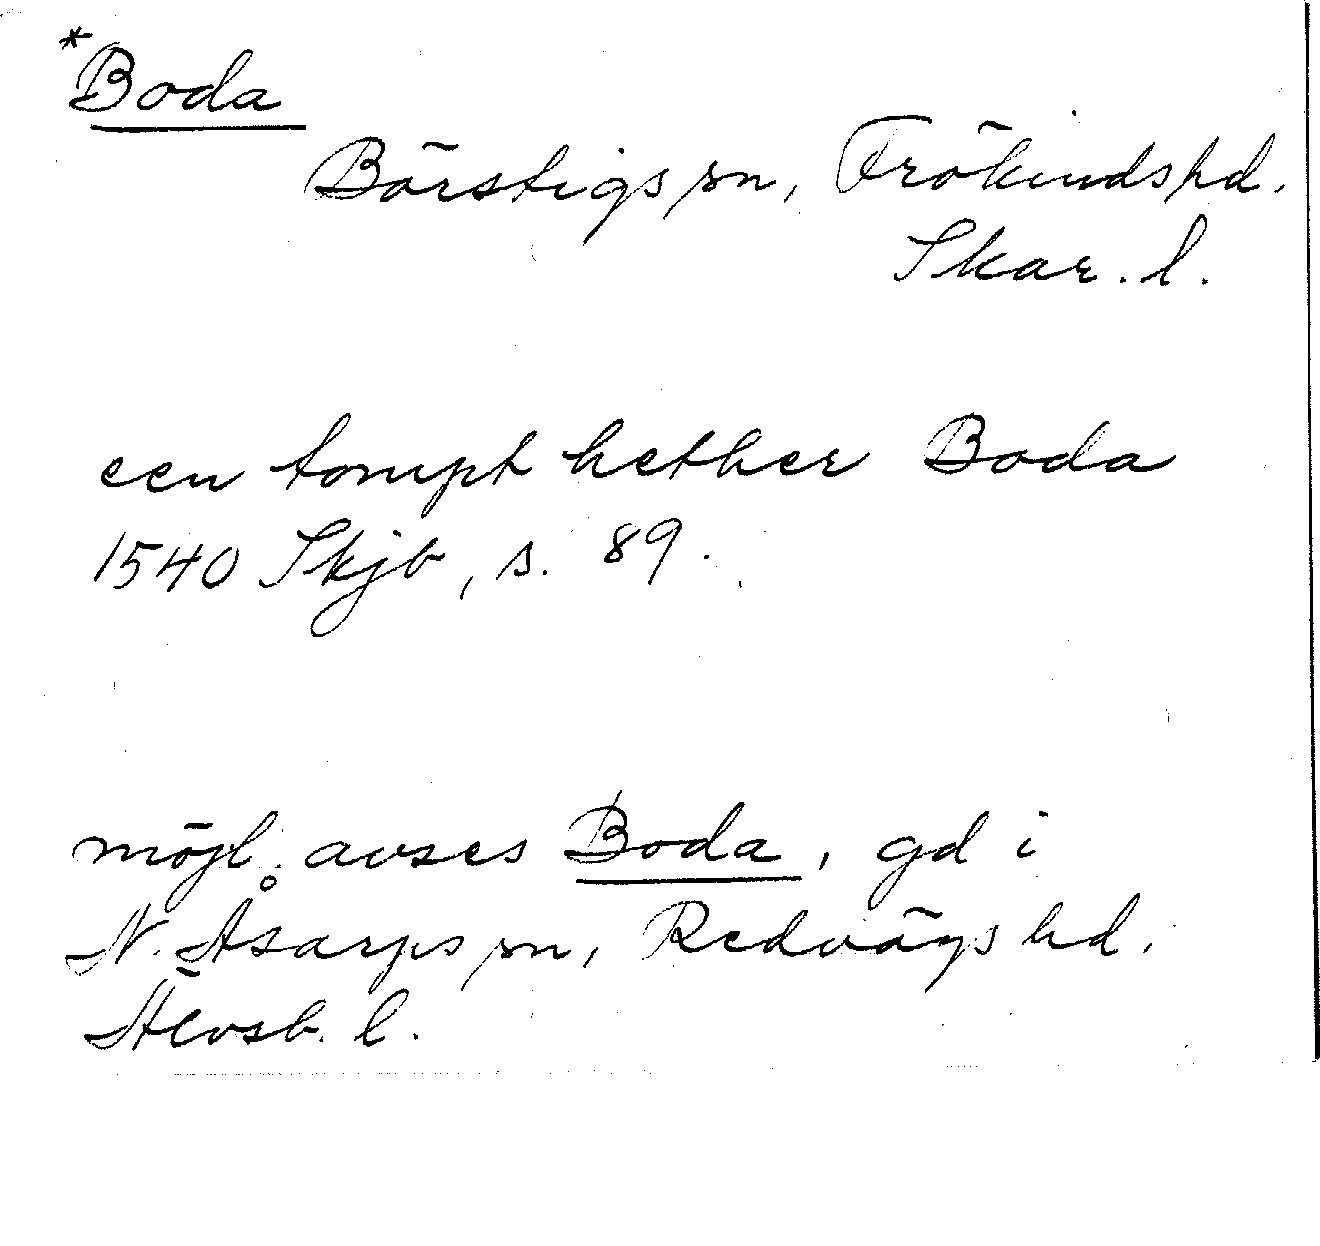 *Boda
Börstigs sn, Frökinds hd.
Skar. l.
een tompt hether Boda
1540 Skjb, s. 89.
möjl. avses Boda, gd i
N. Åsarps sn, Redvägs hd,
Älvsb. l.